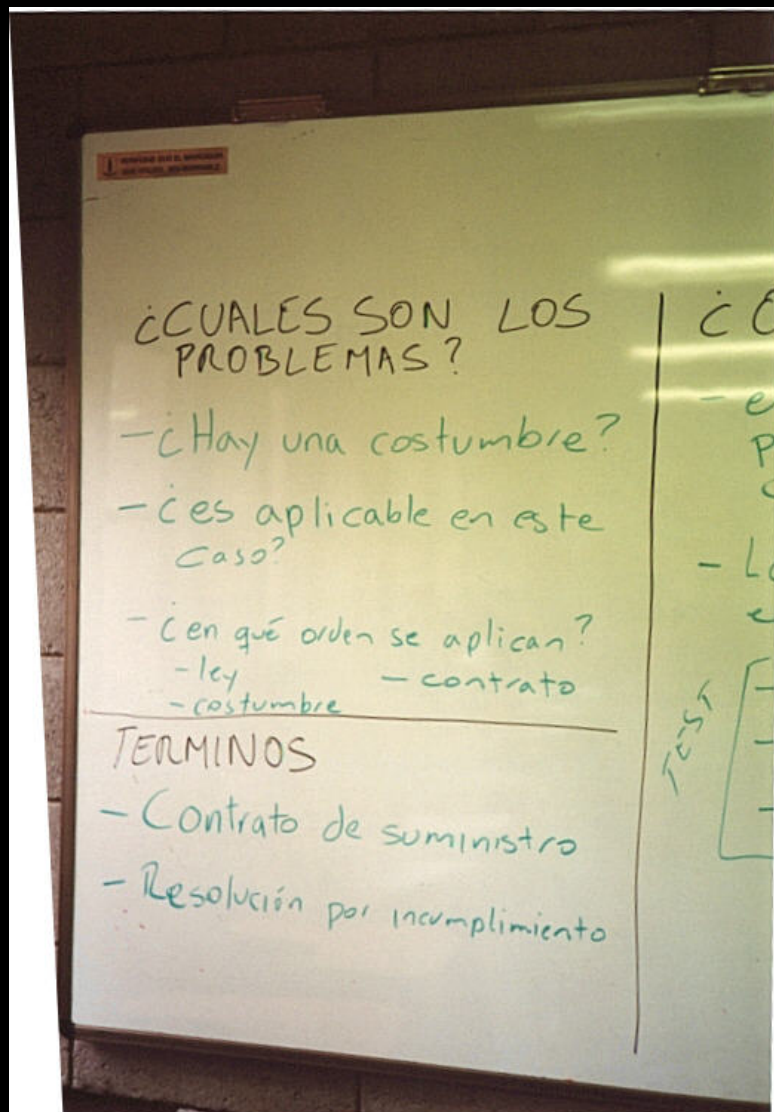 ¿CUALES SON LOS
PROBLEMAS?
- ¿Hay una costumbre?
- ¿es aplicable en este
caso?
- ¿en qué orden se aplican?
- ley - contrato
- costumbre
TERMINOS
- Contrato de suministro
- Resolución por incumplimiento
¿
- e
P
- Lo
e
TEST